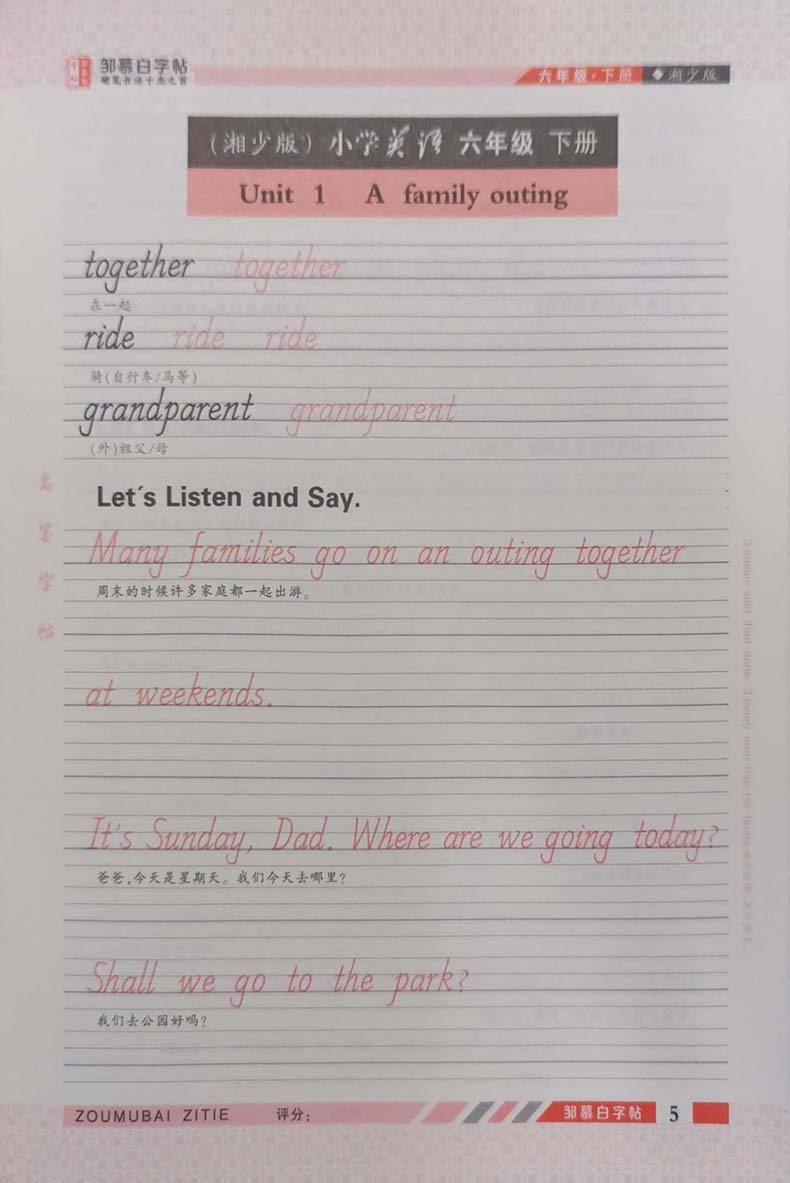 邹慕白字帖
硬笔书法十杰之首
六年级·下册 ◆湘少版
(湘少版) 小学英语 六年级 下册
Unit 1 A family outing
together together
在一起
ride ride ride
骑(自行车/马等)
grandparent grandparent
(外)祖父/母
Let's Listen and Say.
Many families go on an outing together
周末的时候许多家庭都一起出游。
at weekends.
It's Sunday, Dad. Where are we going today?
爸爸,今天是星期天。我们今天去哪里?
Shall we go to the park?
我们去公园好吗?
名笔字帖
2.easier said than done. 3.every man has his faults.
ZOUMUBAI ZITIE 评分: 邹慕白字帖 5